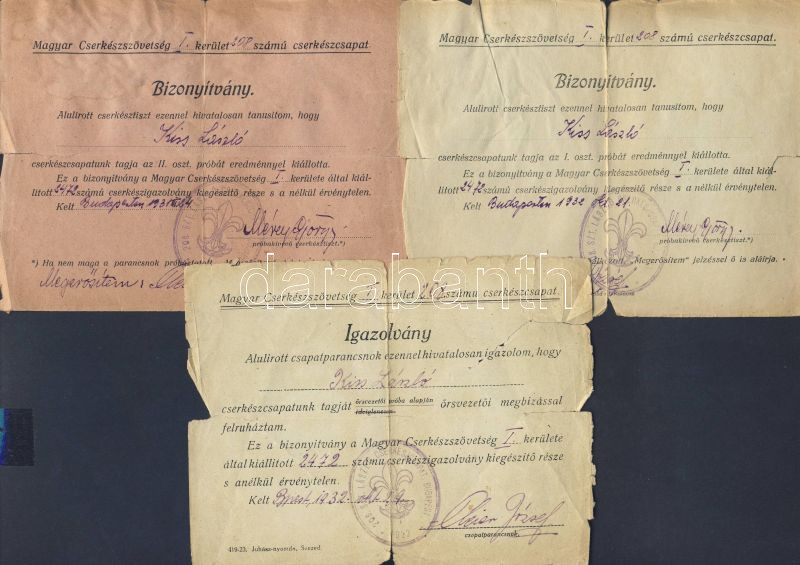 Magyar Cserkészszövetség I. kerület 208 számú cserkészcsapat.
Bizonyítvány.
Alulirott cserkésztiszt ezennel hivatalosan tanusítom, hogy
Kiss László
cserkészcsapatunk tagja az II. oszt. próbát eredménnyel kiállotta.
Ez a bizonyítvány a Magyar Cserkészszövetség I. kerülete által kiál-
lított 2472 számú cserkészigazolvány kiegészítő része s a nélkül érvénytelen.
Kelt Budapesten
Mérey György
próbakivevő cserkésztiszt.*)
*) Ha nem maga a parancsnok próbáztatott
Megerősítem:
Magyar Cserkészszövetség I. kerület 208 számú cserkészcsapat.
Bizonyítvány.
Alulirott cserkésztiszt ezennel hivatalosan tanusítom, hogy
Kiss László
cserkészcsapatunk tagja az I. oszt. próbát eredménnyel kiállotta.
Ez a bizonyítvány a Magyar Cserkészszövetség I. kerülete által kiál-
lított 2472 számú cserkészigazolvány kiegészítő része s a nélkül érvénytelen.
Kelt Budapesten 1932 21.
Mérey György
próbakivevő cserkésztiszt.*)
„Megerősítem" jelzéssel ő is aláírja.
darabanth
Magyar Cserkészszövetség I. kerület 208. számu cserkészcsapat.
Igazolvány
Alulirott csapatparancsnok ezennel hivatalosan igazolom, hogy
Kiss László
cserkészcsapatunk tagját őrsvezetői próba alapján őrsvezetői megbizással
ideiglenesen
felruháztam.
Ez a bizonyítvány a Magyar Cserkészszövetség I. kerülete
által kiállított 2472 számu cserkészigazolvány kiegészítő része
s anélkül érvénytelen.
Kelt Bpest 1932. okt. 24.
József
csapatparancsnok.
419-23. Juhász-nyomda, Szeged.